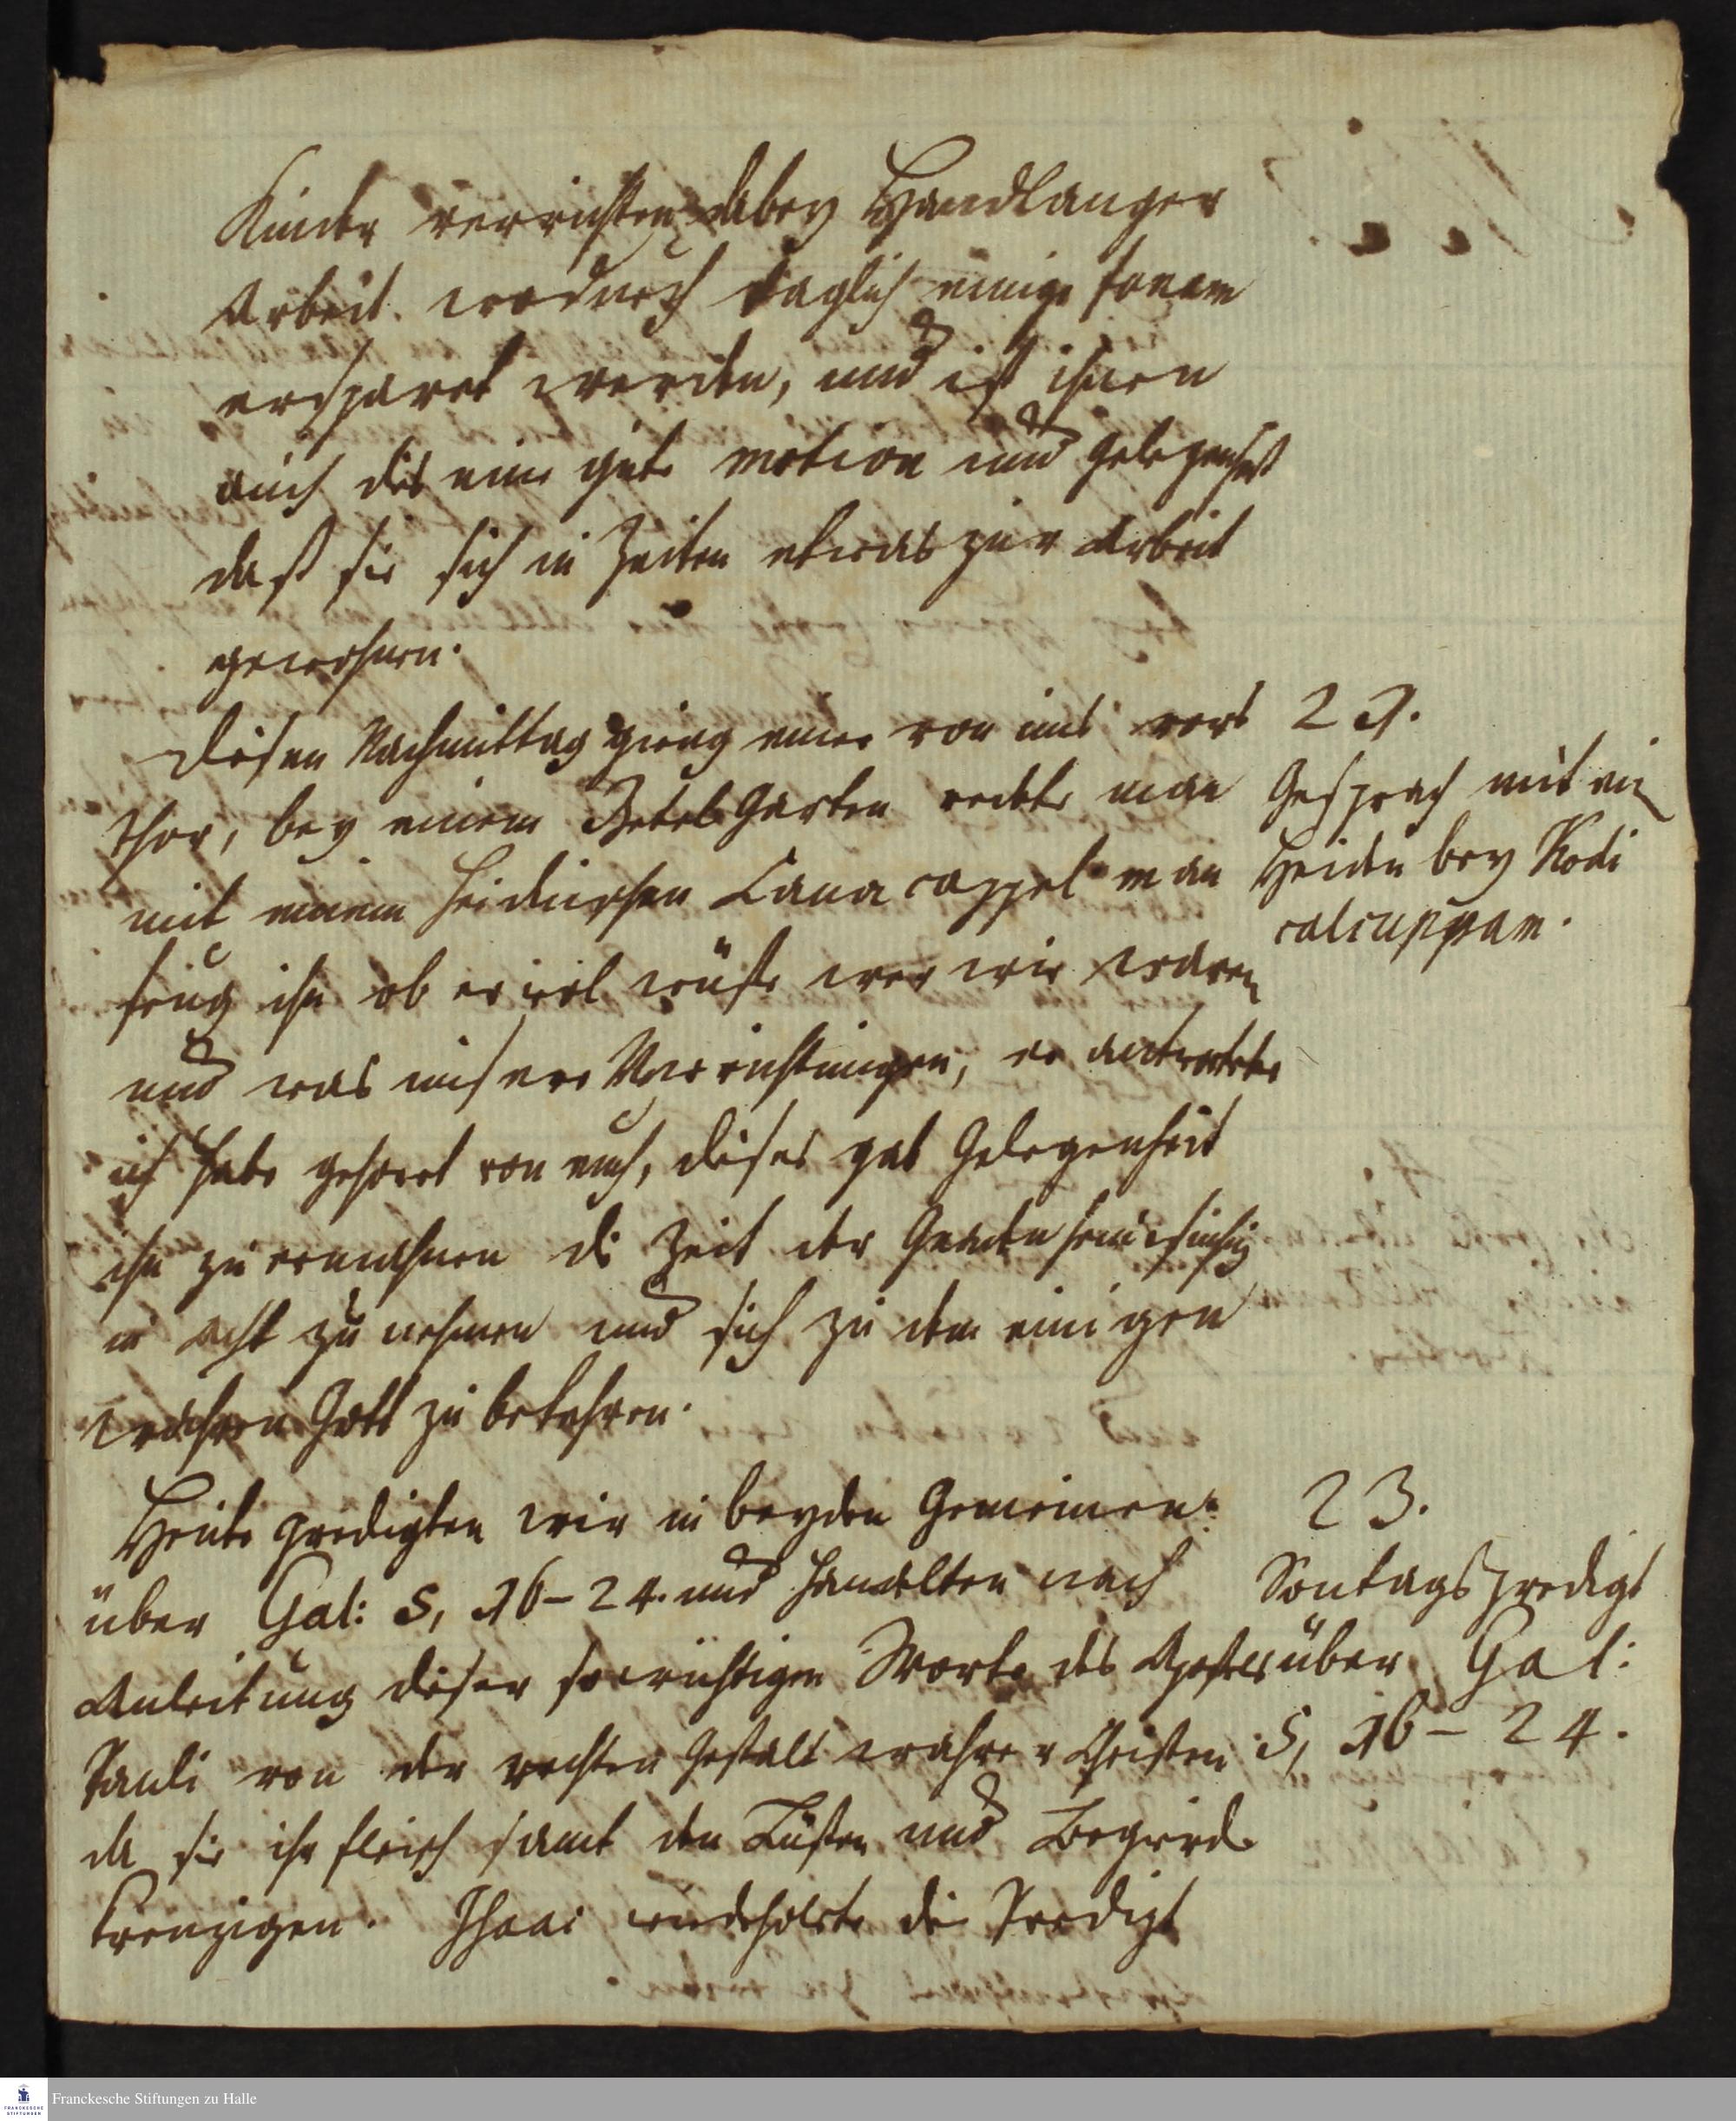 Kinder verrichten dabey Handlanger
Arbeit. wodurch taglich einige fanam
ersparet werden, und ist ihnen
auch dis eine gute motion und gelegenheit
daß sie sich in Zeiten etwas zur Arbeit
gewohnen.
Diesen Nachmittag gieng einer von uns vors
Thor, bey einem Betel Garten redete man
mit einem heidnischen Canacappel man
frug ihn ob er wol wüste wer wir waren
und was unsere Verrichtungen, er antwortete
ich habe gehoret von euch, dieses gab Gelegenheit
ihn zu ermahnen die Zeit der Gnaden
in acht zu nehmen und sich zu dem einigen
wahren Gott zu bekehren.
21.
Gesprach mit ein
Heiden bey Kodi
calcuppam.
Heute predigten wir in beyden Gemeinen
über Gal: 5, 16-24. und handelten nach
Anleitung dieser Worte des Apostels
Pauli von der rechten Gestalt wahrer Christen
da sie ihr fleisch samt den Lüsten und Begierde
creuzigen. Isaac wiederholete die Predigt
23.
Sontags predigt
über Gal:
5, 16-24.
Franckesche Stiftungen zu Halle
FRANCKESCHE
STIFTUNGEN